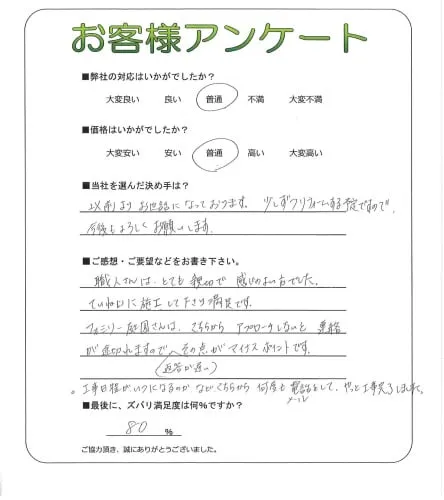 お客様アンケート
■弊社の対応はいかがでしたか？
大変良い 良い 普通 不満 大変不満
■価格はいかがでしたか？
大変安い 安い 普通 高い 大変高い
■当社を選んだ決め手は？
以前よりお世話になっております。少しずつリフォームする予定ですので、
今後もよろしくお願いします。
■ご感想・ご要望などをお書き下さい。
職人さんは、とても親切で感じのよい方でした。
ていねいに施工して下さり満足です。
ファミリー庭園さんは、こちらからアプローチしないと連絡
が途切れますので、その点がマイナスポイントです。
(返答が遅い)
。工事日程がいつになるのかなどこちらから何度も電話をして、やっと工事完了しました。
メール
■最後に、ズバリ満足度は何%ですか？
80 %
ご協力頂き、誠にありがとうございました。